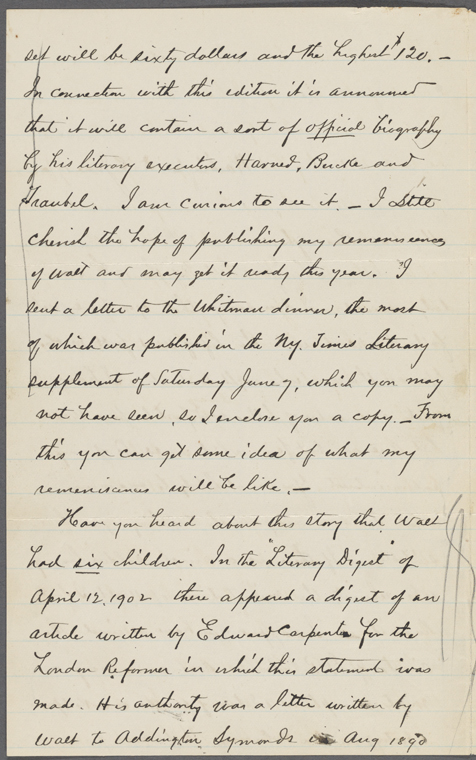 set will be sixty dollars and the highest $120. —
In connection with this edition it is announced
that it will contain a sort of official biography
by his literary executors, Harned, Bucke and
Traubel. I am curious to see it. — I still
cherish the hope of publishing my reminiscences
of Walt and may get it ready this year. I
sent a letter to the Whitman dinner, the most
of which was published in the N.Y. Times Literary
supplement of Saturday June 7, which you may
not have seen, so I enclose you a copy. — From
this you can get some idea of what my
remeniscences will be like. —
Have you heard about this story that Walt
had six children. In the "Literary Digest" of
April 12, 1902 there appeared a digest of an
article written by Edward Carpenter for the
London Reformer in which this statement was
made. His authority was a letter written by
Walt to Addington Symonds in Aug 1890